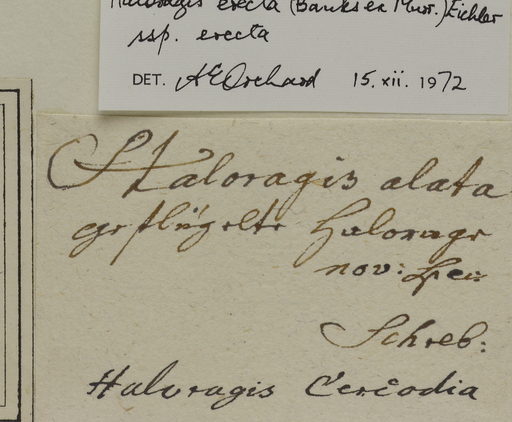 Haloragis erecta (Banks ex Murr.) Eichler
ssp. erecta
DET. AE Orchard 15. xii. 1972
Haloragis alata
geflügelte Halorage
nov: Zee:
Schreb:
Halvragis Cercodia